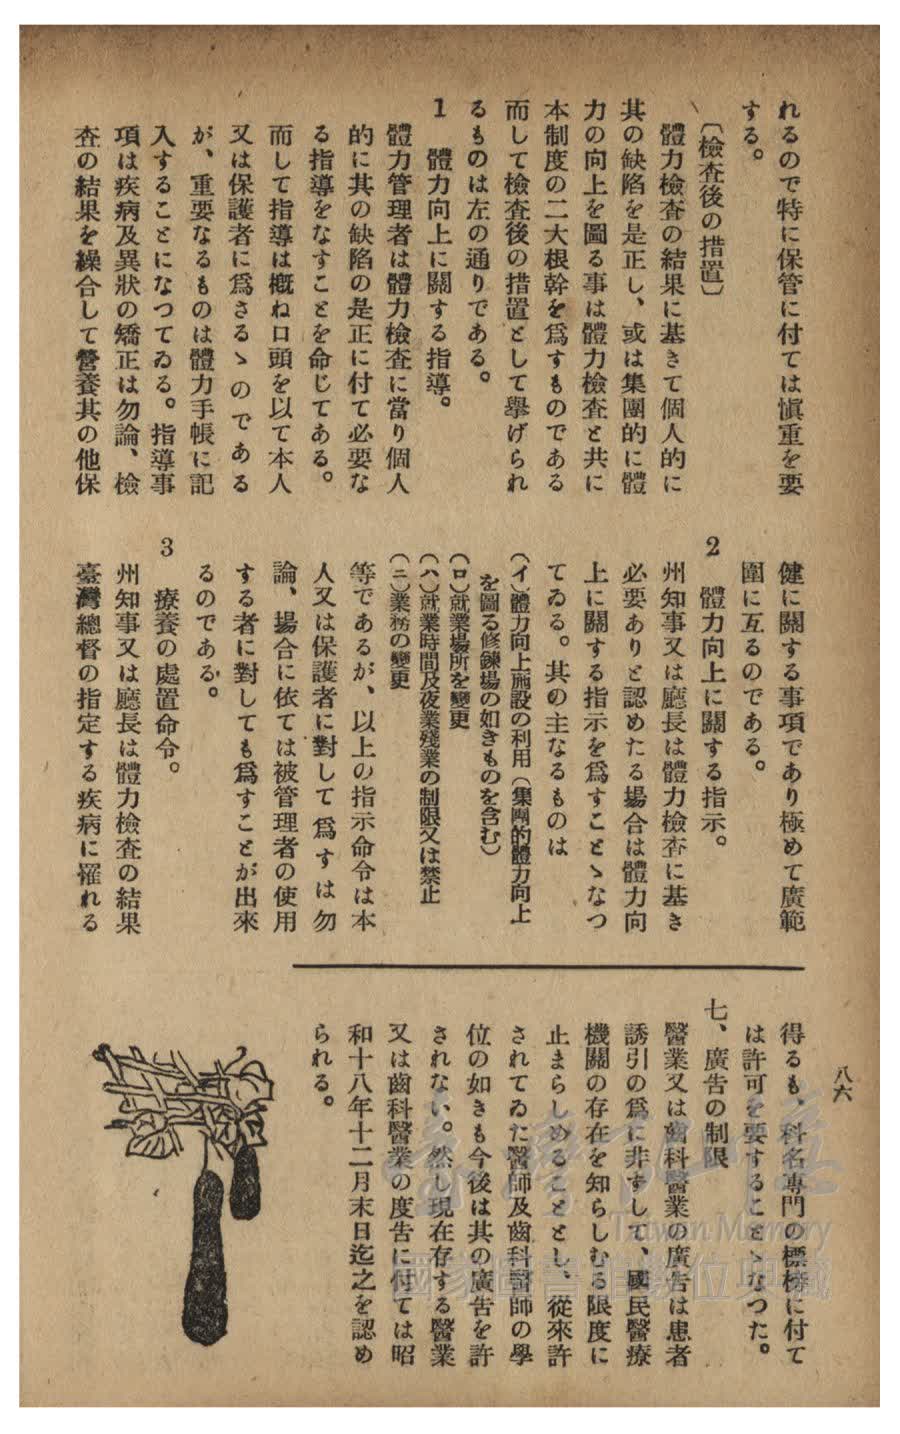 れるので特に保管に付ては愼重を要
する。
〔檢査後の措置〕
體力檢査の結果に基きて個人的に
其の缺陷を是正し、或は集團的に體
力の向上を圖る事は體力檢査と共に
本制度の二大根幹を爲すものである
而して檢査後の措置として擧げられ
るものは左の通りである。
1 體力向上に關する指導。
體力管理者は體力檢査に當り個人
的に其の缺陷の是正に付て必要な
る指導をなすことを命じてある。
而して指導は概ね口頭を以て本人
又は保護者に爲さるゝのである
が、重要なるものは體力手帳に記
入することになつてゐる。指導事
項は疾病及異狀の矯正は勿論、檢
査の結果を綜合して營養其の他保
健に關する事項であり極めて廣範
圍に亙るのである。
2 體力向上に關する指示。
州知事又は廳長は體力檢査に基き
必要ありと認めたる場合は體力向
上に關する指示を爲すことゝなつ
てゐる。其の主なるものは
(イ)體力向上施設の利用(集團的體力向上
を圖る修鍊場の如きものを含む)
(ロ)就業場所を變更
(ハ)就業時間及夜業殘業の制限又は禁止
(ニ)業務の變更
等であるが、以上の指示命令は本
人又は保護者に對して爲すは勿
論、場合に依ては被管理者の使用
する者に對しても爲すことが出來
るのである。
3 療養の處置命令。
州知事又は廳長は體力檢査の結果
臺灣總督の指定する疾病に罹れる
得るも、科名專門の標榜に付て
は許可を要することゝなつた。
七、廣告の制限
醫業又は齒科醫業の廣告は患者
誘引の爲に非ずして、國民醫療
機關の存在を知らしむる限度に
止まらしめることとし、從來許
されてゐた醫師及齒科醫師の學
位の如きも今後は其の廣告を許
されない。然し現在存する醫業
又は齒科醫業の廣告に付ては昭
和十八年十二月末日迄之を認め
られる。
八六
Taiwan Memory
國家圖書館數位典藏